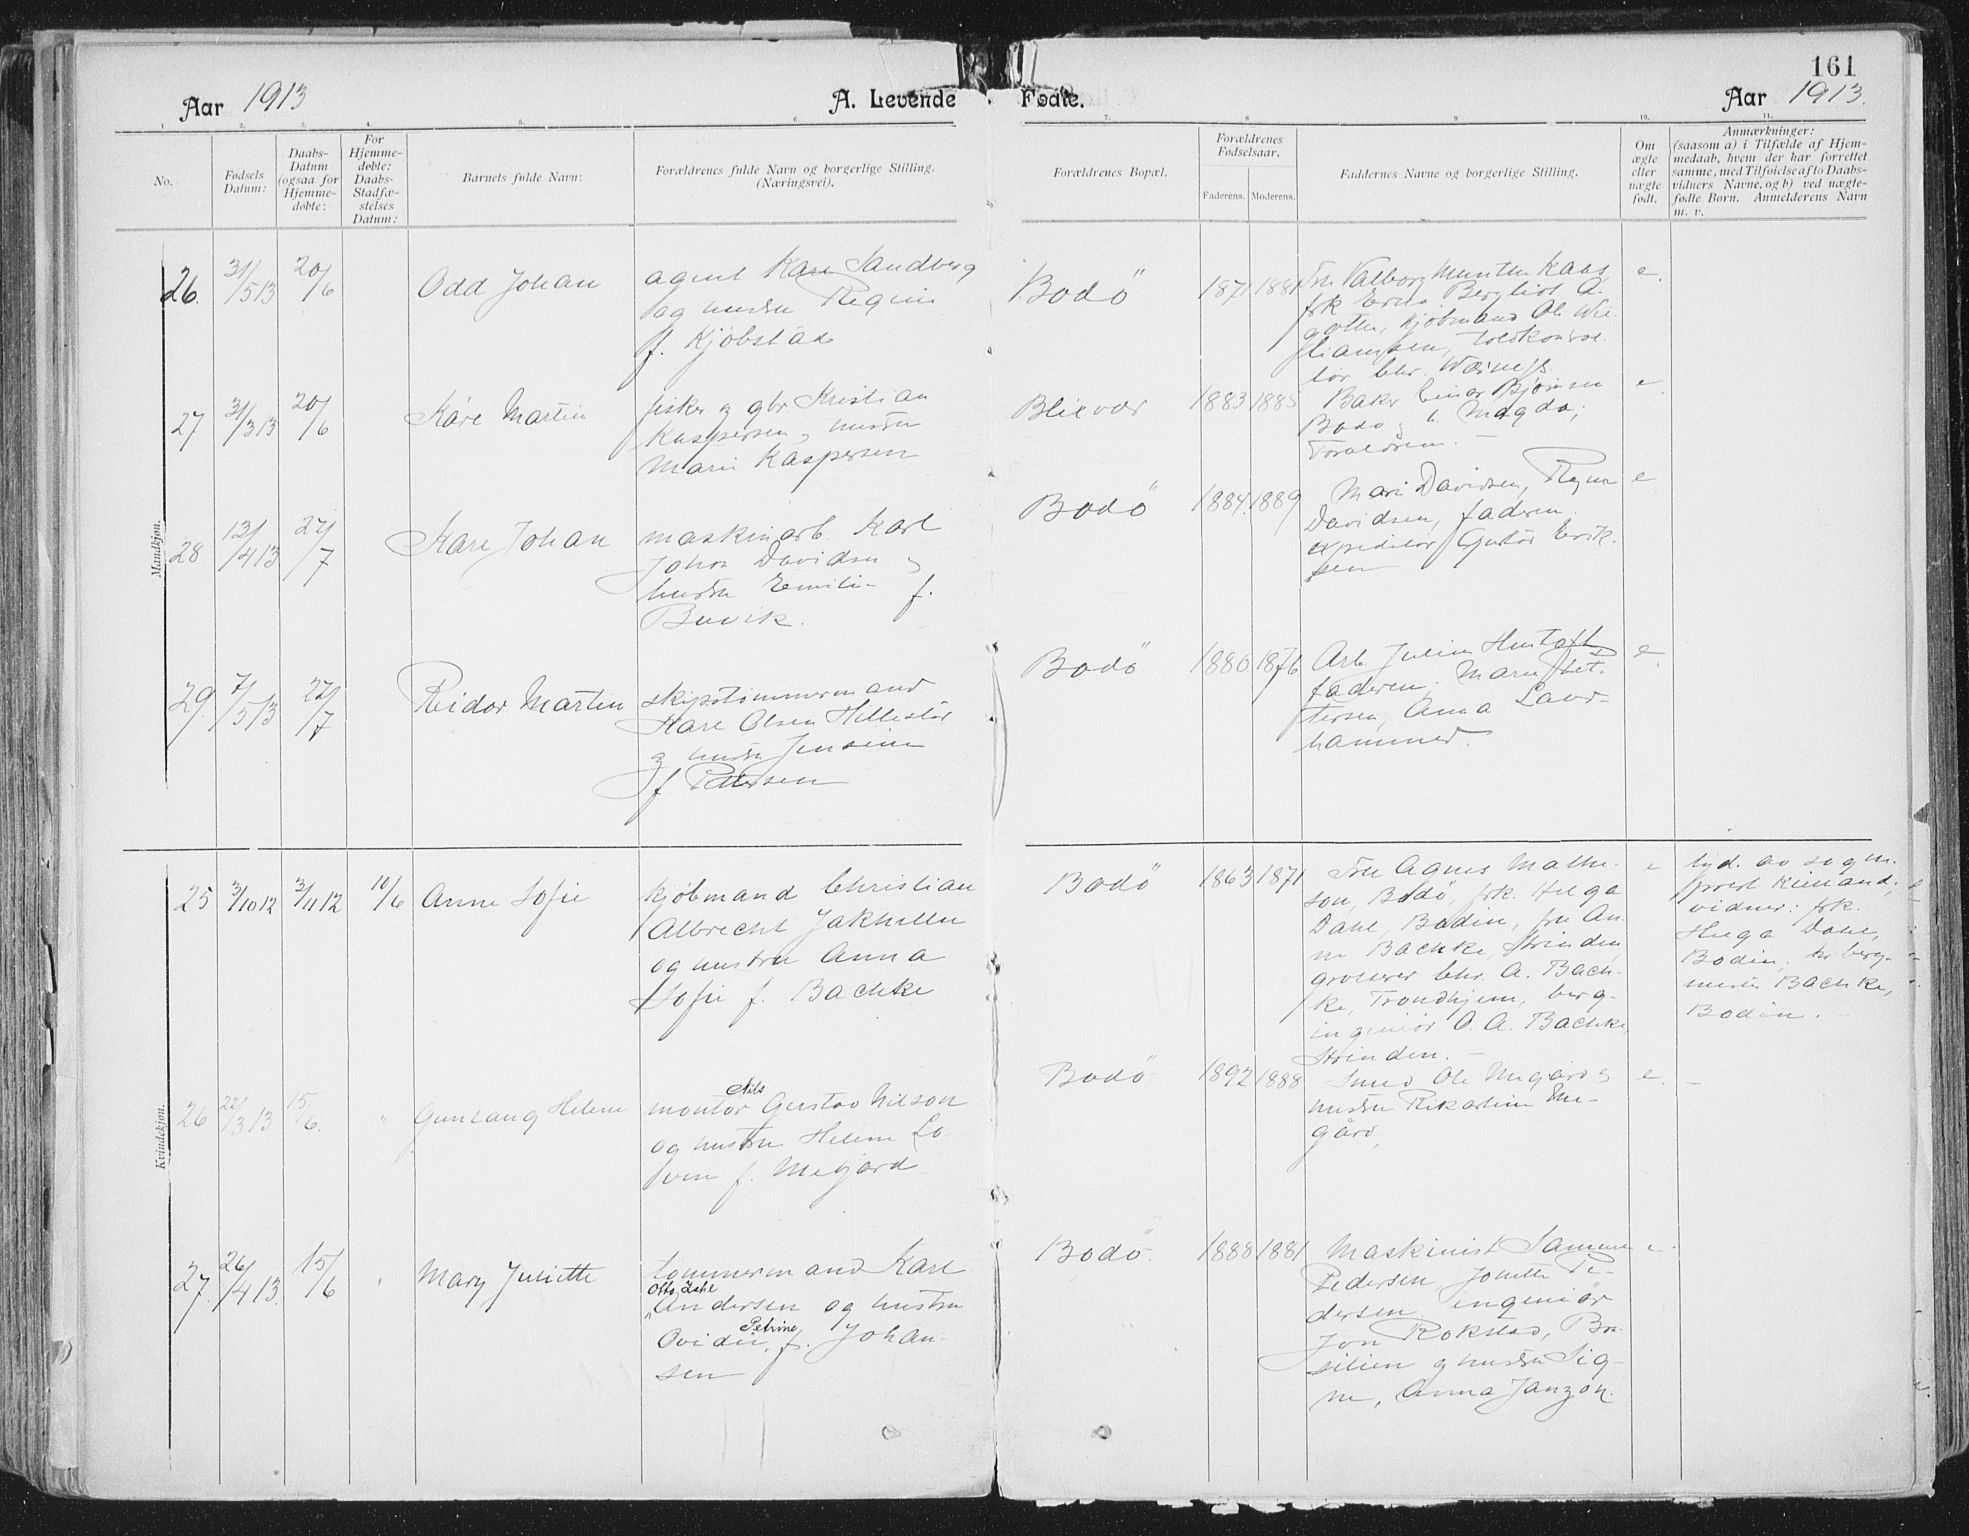 161
Aar 1913
A. Levende Fødte.
Aar 1913.
1. 2. 3. 4. 5. 6. 7. 8. 9. 10. 11.
No.
Fødsels
Datum:
Daabs-
Datum
(ogsaa for
Hjemme-
døbte:
For
Hjemme-
døbte:
Daabs-
Stadfæ-
stelses
Datum:
Barnets fulde Navn:
Forældrenes fulde Navn og borgerlige Stilling.
(Næringsvei).
Forældrenes Bopæl.
Forældrenes
Fødselsaar.
Faderens. Moderens.
Faddernes Navne og borgerlige Stilling.
Om
ægte
eller
uægte
født.
Anmærkninger:
(saasom a) i Tilfælde af Hjem-
medaab, hvem der har forrettet
samme, med Tilføielse af to Daabs-
vidners Navne, og b) ved uægte-
fødte Børn. Anmelderens Navn
m. v.
Mandkjøn.
26. 31/5 13 20/6 Odd Johan
agent Karl Sandberg
og hustru Regine
f. Kjøbstad
Bodö 1871 1881
Fru Valborg Munthe Kaas,
frk Erna
Kjøbmand Ole Wil-
liamsen, toldkontrol-
lør Chr. Wærness.
e.
27 31/3 13 20/6 Kåre Martin
fisker og gbr. Kristian
Kaspersen og hustru
Marie Kaspersen
Blixvær 1883 1885
Baker Einar Bjørnsen
Bodø og h. Magda;
Forældrene. –
e
28 13/4 13 27/7 Kåre Johan
maskinarb. Karl
Johan Davidsen og
hustru Emilie f.
Buvik.
Bodö 1884. 1889
Marie Davidsen,
Davidsen, faderen.
expeditør Gustav Erik-
sen
e
29. 7/5 13 27/7 Reidar Martin
skipstømmermand
Kare Olsen
og hustru Jensine
f. Pettersen
Bodö 1880 1876
Arb. Julius
faderen. Maren Pet-
tersen, Anna Laur-
hammer.
e.
Kvindekjøn.
25 3/10 12 3/11 12 10/6 Anne Sofie
kjøbmand Christian
Albrecht Jakhelln
og hustru Anna
Sofie f. Bachke
Bodö 1863 1871
Fru Agnes Mathe-
son, Bodö, frk. Helga
Dahl, Bodin, fru An-
na Bachke, Strinden
grosserer Chr. A. Bach-
ke, Trondhjem, berg-
ingeniør O. A. Bachke,
Strinden. –
e
av sogne-
prest
vidner: frk.
Helga Dahl,
Bodin. hr berg-
mester Bachke,
Bodin. –
26 22/3 13 15/6. " Gunlaug Helene
Nils
montør Gustav Nilson
og hustru Helene Lo-
vise f. Megård
Bodö. 1892 1888
Smed Ole Megård og
hustru Rikardine Me-
gård,
e. –
27. 26/4 13. 15/6 " Mary Juliette
tømmermand Karl
Otto Dahl
Andersen og hustru
Petrine
Ovidie, f. Johan-
sen
Bodö. 1888 1881
Maskinist Samuel
Pedersen Jonette Pe-
dersen ingeniør
Jon Rokstad, Bra-
silien og hustru Sig-
ne, Anna Janzon.
e.